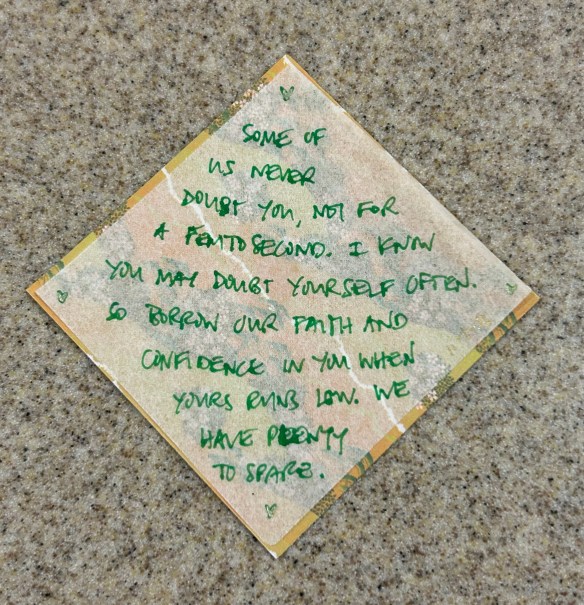 SOME OF
US NEVER
DOUBT YOU, NOT FOR
A FEMTOSECOND. I KNOW
YOU MAY DOUBT YOURSELF OFTEN.
SO BORROW OUR FAITH AND
CONFIDENCE IN YOU WHEN
YOURS RUNS LOW. WE
HAVE PLENTY
TO SPARE.